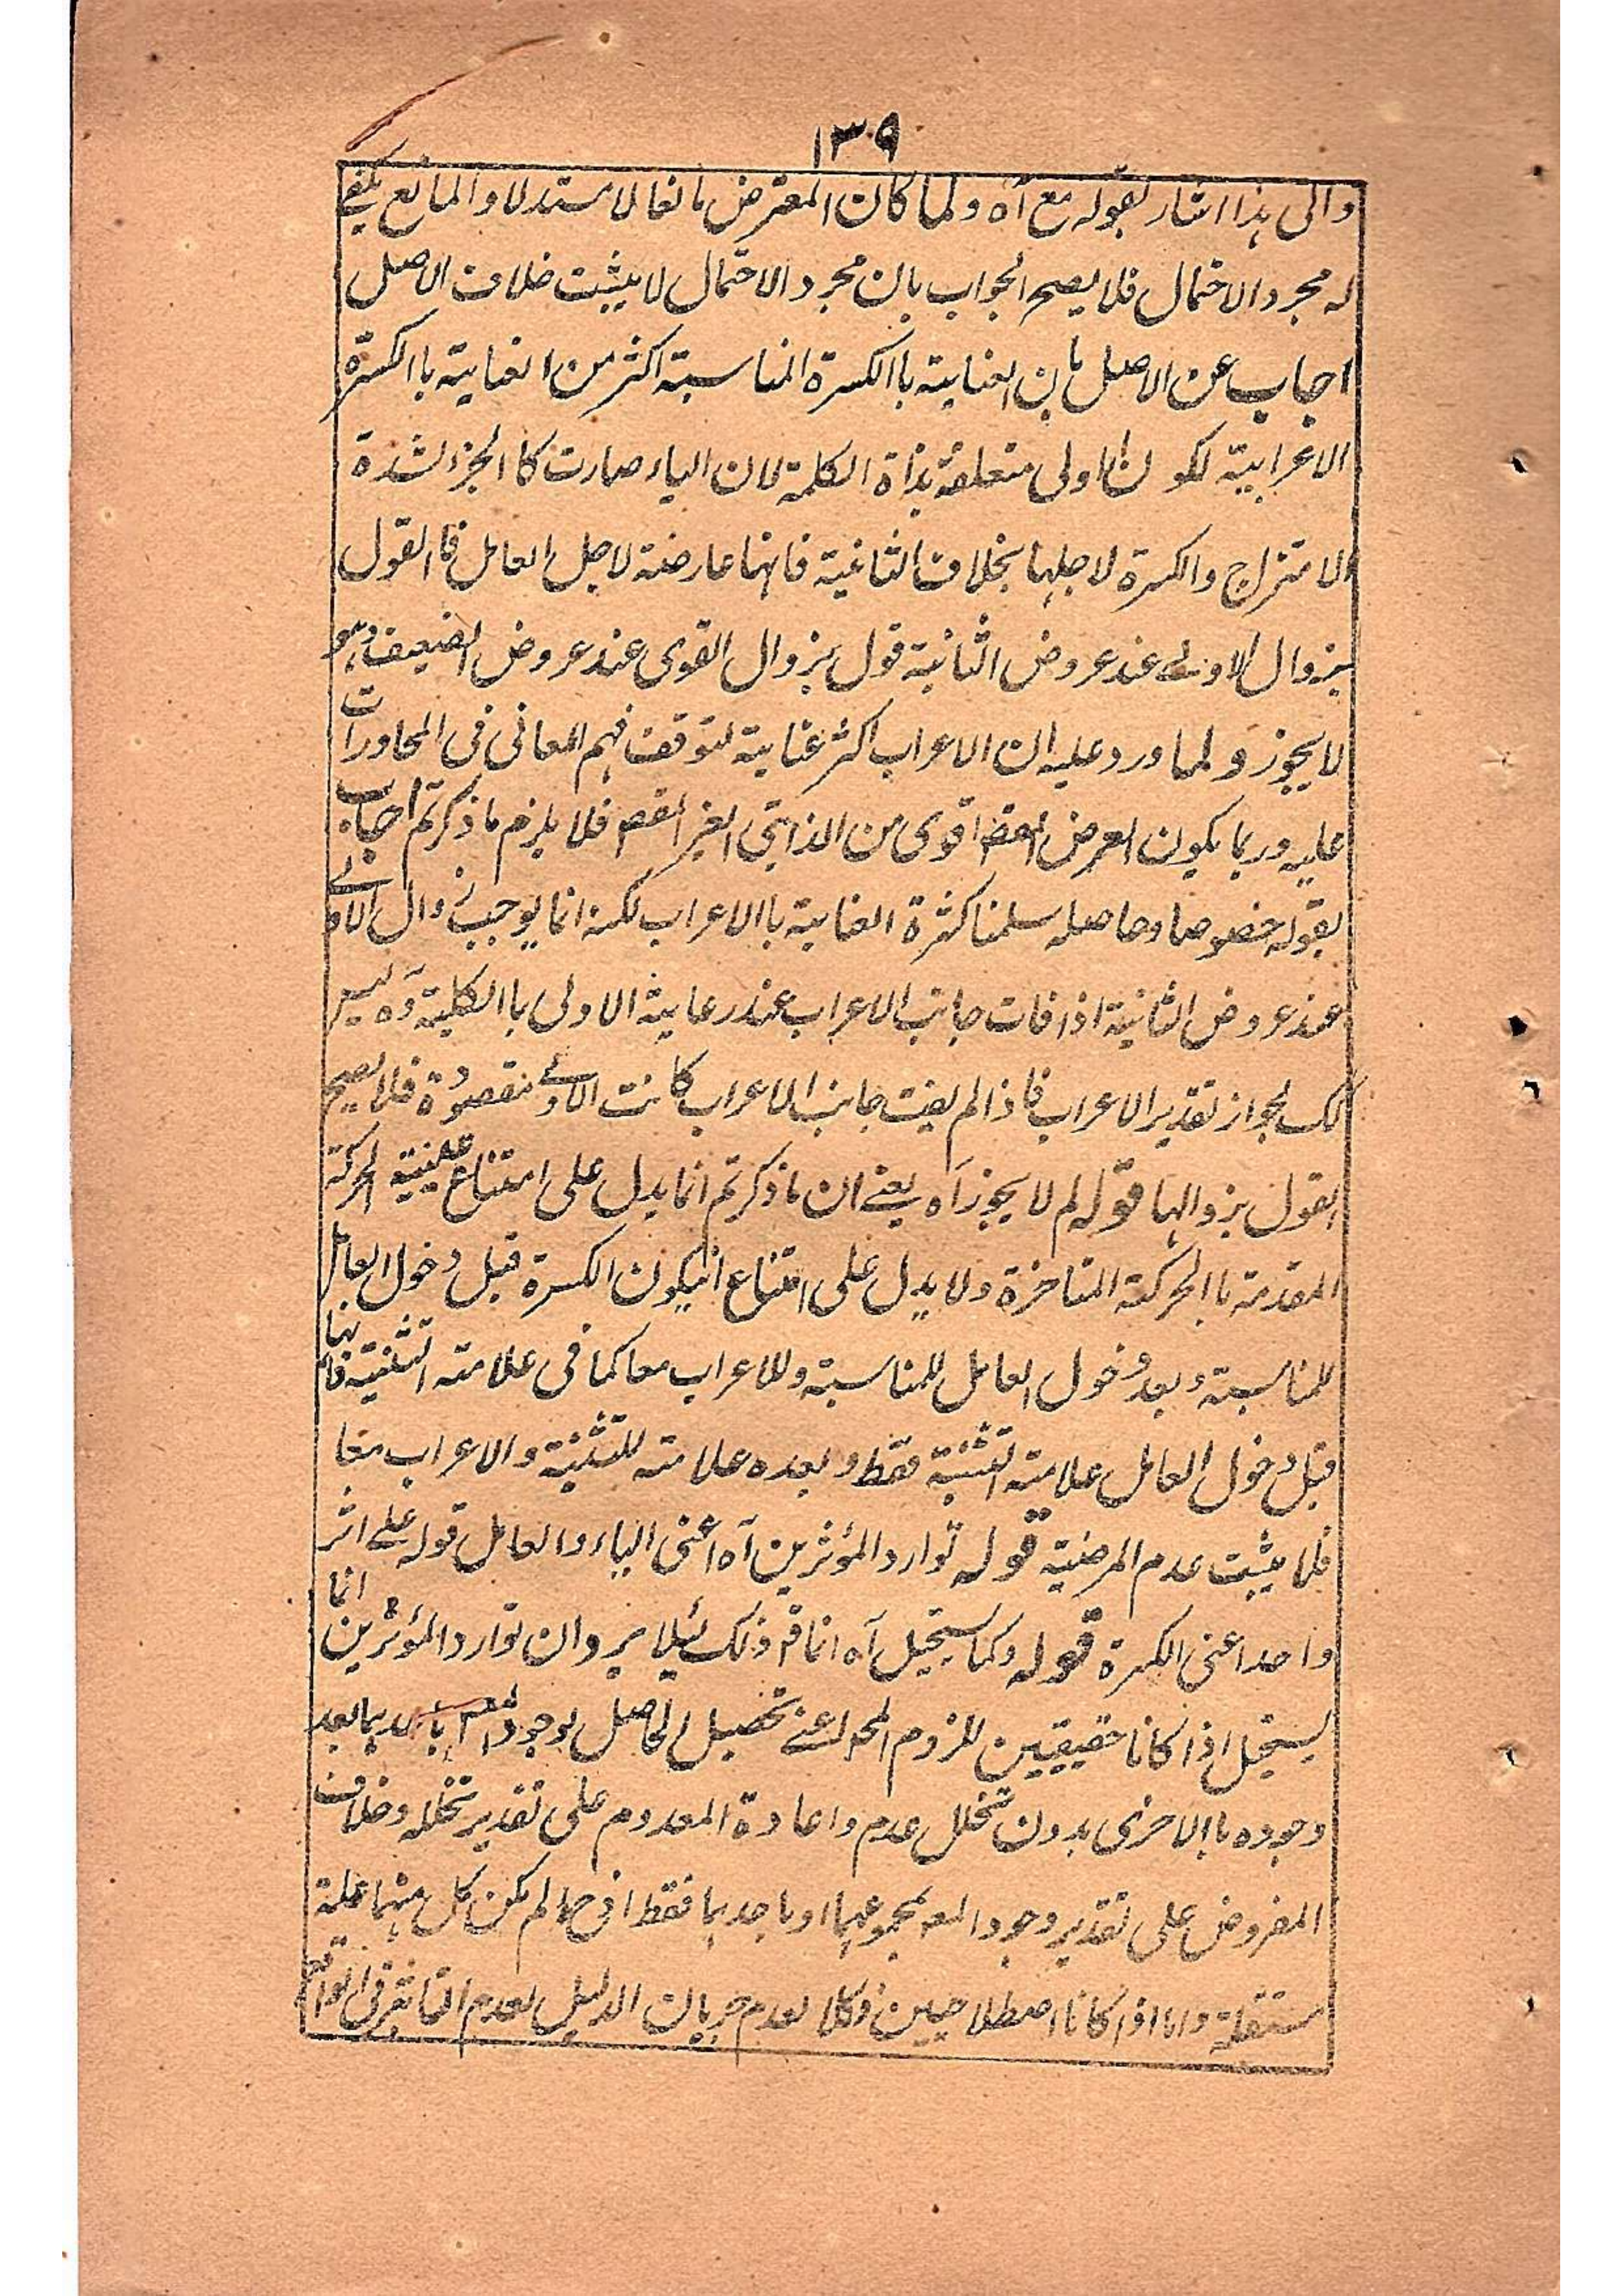 ۱۳۹
والى هذا اشار بقوله مع آه ولما كان المعترض مانعا لا مستدلا والمانع يكفے
له مجرد الاحتمال فلا يصح الجواب بان مجرد الاحتمال لا يثبت خلاف الاصل
اجاب عن الاصل بان العناية باالكسرة المناسبة اكثر من العناية باالكسرة
الاعرابية لكون الاولى متعلقة بذاة الكلمة لان الياء صارت كاالجزء لشدة
الامتزاج والكسرة لاجلها بخلاف الثانية فانها عارضة لاجل العامل فاالقول
بزوال الاولے عند عروض الثانية قول بزوال القوى عند عروض الضعيف وهو
لا يجوز ولما ورد عليه ان الاعراب اكثر عناية لتوقف فهم المعانى فى المحاورات
عليه وربما يكون العرض المقصم اقوى من الذاتى الغير المقصم فلا يلزم ما ذكرتم اجاب
بقوله خصوصا وحاصله سلمنا كثرة العناية باالاعراب لكنه انما يوجب زوال الاولے
عند عروض الثانية اذا فات جانب الاعراب عند رعاية الاولى باالكلية وه ليس
كك لجواز تقدير الاعراب فاذا لم يفت جانب الاعراب كانت الاولے مقصودة فلا يصح
القول بزوالها قوله لم لا يجوز آه يعنے ان ما ذكرتم انما يدل على امتناع عينية الحركة
المقدمة باالحركة المتاخرة ولا يدل على امتناع انيكون الكسرة قبل دخول العامل
للمناسبة وبعد دخول العامل للمناسبة وللاعراب معا كما فى علامة التثنية فانها
قبل دخول العامل علامة التثنية فقط وبعده علامة للتثنية والاعراب معا
فلا يثبت عدم المرضية قوله توارد المؤثرين آه اعنى الياء والعامل قوله علے اثر
واحد اعنى الكسرة قوله وكما يستحيل آه انما قم ذلك لئلا يرد ان توارد المؤثرين انما
يستحيل اذا كانا حقيقيين للزوم المحم اعنے تحصيل الحاصل لوجود المعم باحديهما بعد
وجوده باالاخرى بدون تخلل عدم واعادة المعدوم على تقدير تخلله وخلاف
المفروض على تقدير وجود المعم بمجموعهما او باحديهما فقط اذ ح لم يكن كل منهما علة
مستقلة واما اذا كانا اصطلاحيين فكلا لعدم جريان الدليل لعدم التاثير فى الواقع